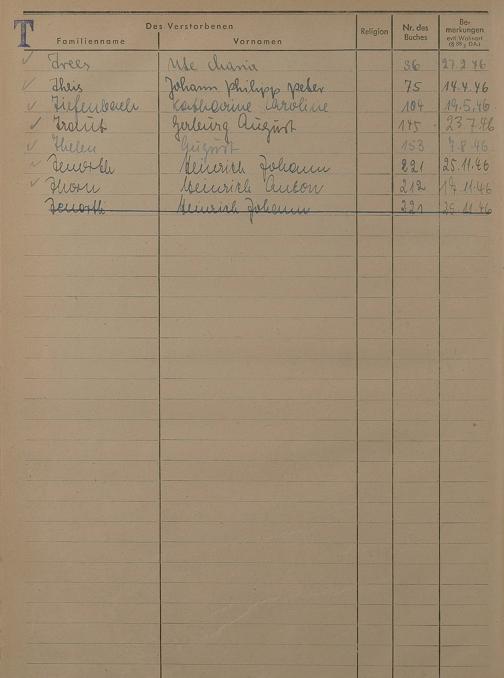 T
Des Verstorbenen
Familienname Vornamen Religion Nr. des Buches Bemerkungen evtl. Wohnort (§ 39 g DA.)
✓ Trees Ute Maria 36 27.2.46
✓ Theis Johann Philipp Peter 75 14.4.46
✓ Tiefenbach Katharine Caroline 104 19.5.46
✓ Traut Gerburg August 145 23.7.46
✓ Thelen August 153 7.8.46
✓ Temorth Heinrich Johann 221 25.11.46
✓ Thorn Heinrich Anton 212 14.11.46
Temorth Heinrich Johann 221 25.11.46